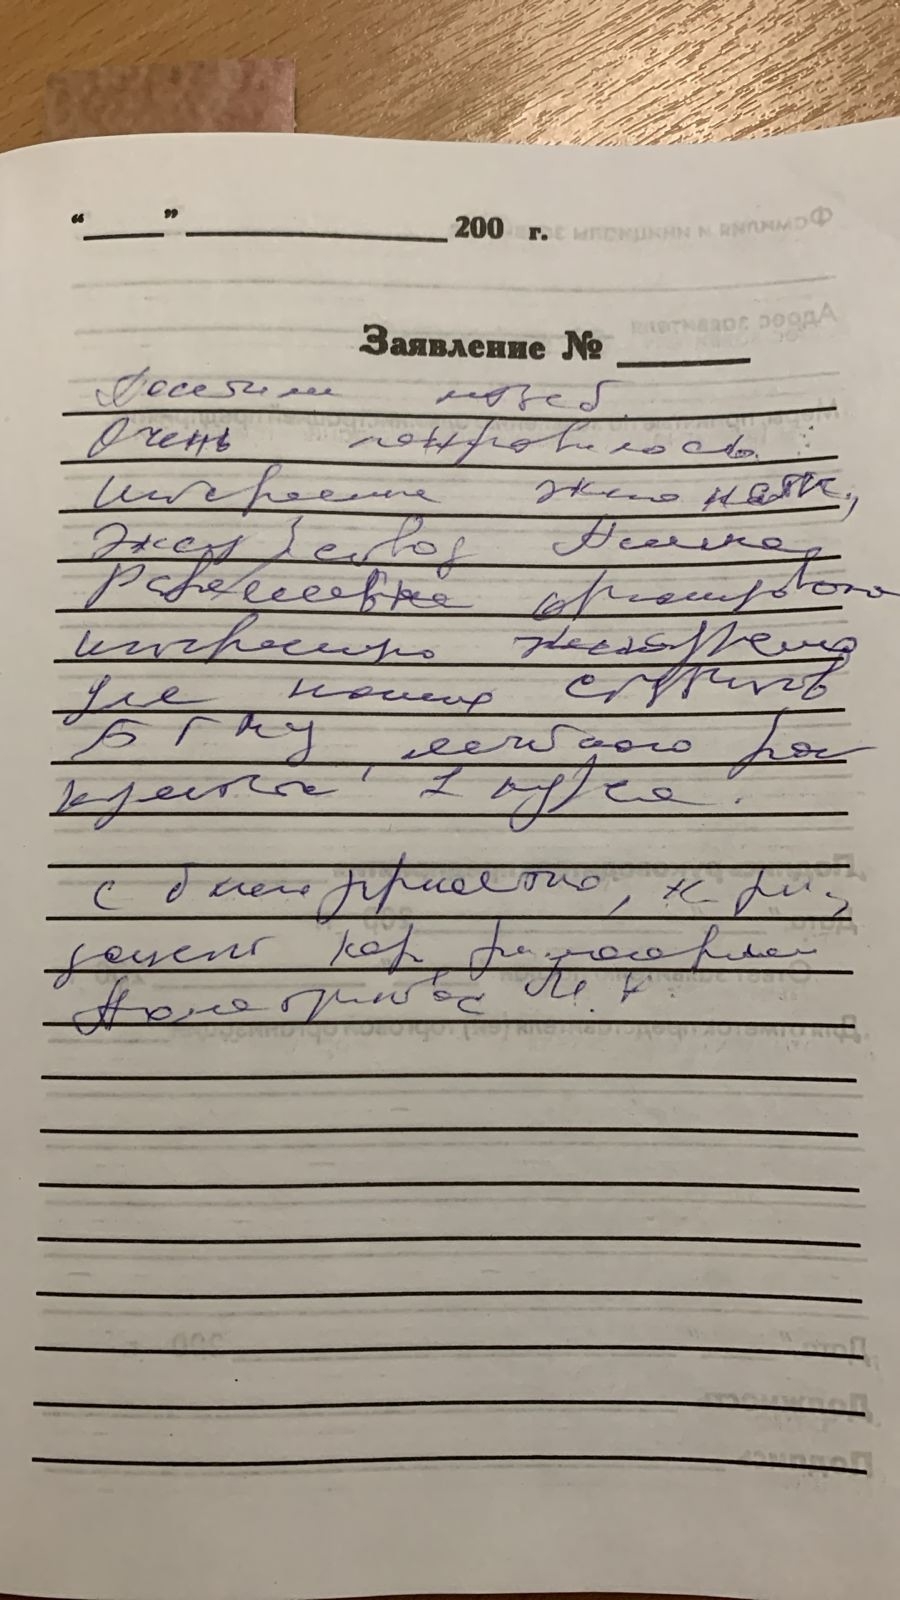 “___” ____________ 200 г.
Заявление № ______
Посетили музей.
Очень понравилось.
интересные экспонаты,
экскурсовод
Равилевна организовала
интересную экскурсию
для наших студентов
БГМУ, лечебного фа-
культета 1 курса.
С благодарностью, к.ф.н.,
доцент каф. философии